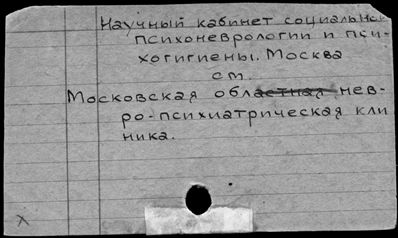 Научный кабинет социальной
психоневрологии и пси-
хогигиены. Москва
см.
Московская областная нев-
ро-психиатрическая кли
ника.
х